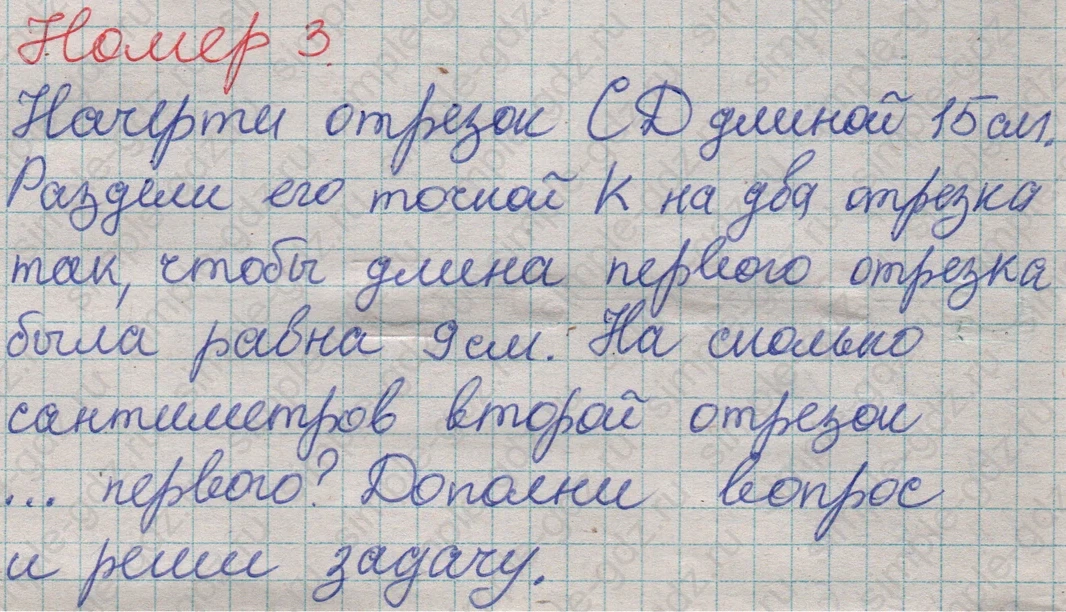 Номер 3.
Начерти отрезок СД длиной 15 см.
Раздели его точкой К на два отрезка
так, чтобы длина первого отрезка
была равна 9 см. На сколько
сантиметров второй отрезок
... первого? Дополни вопрос
и реши задачу.